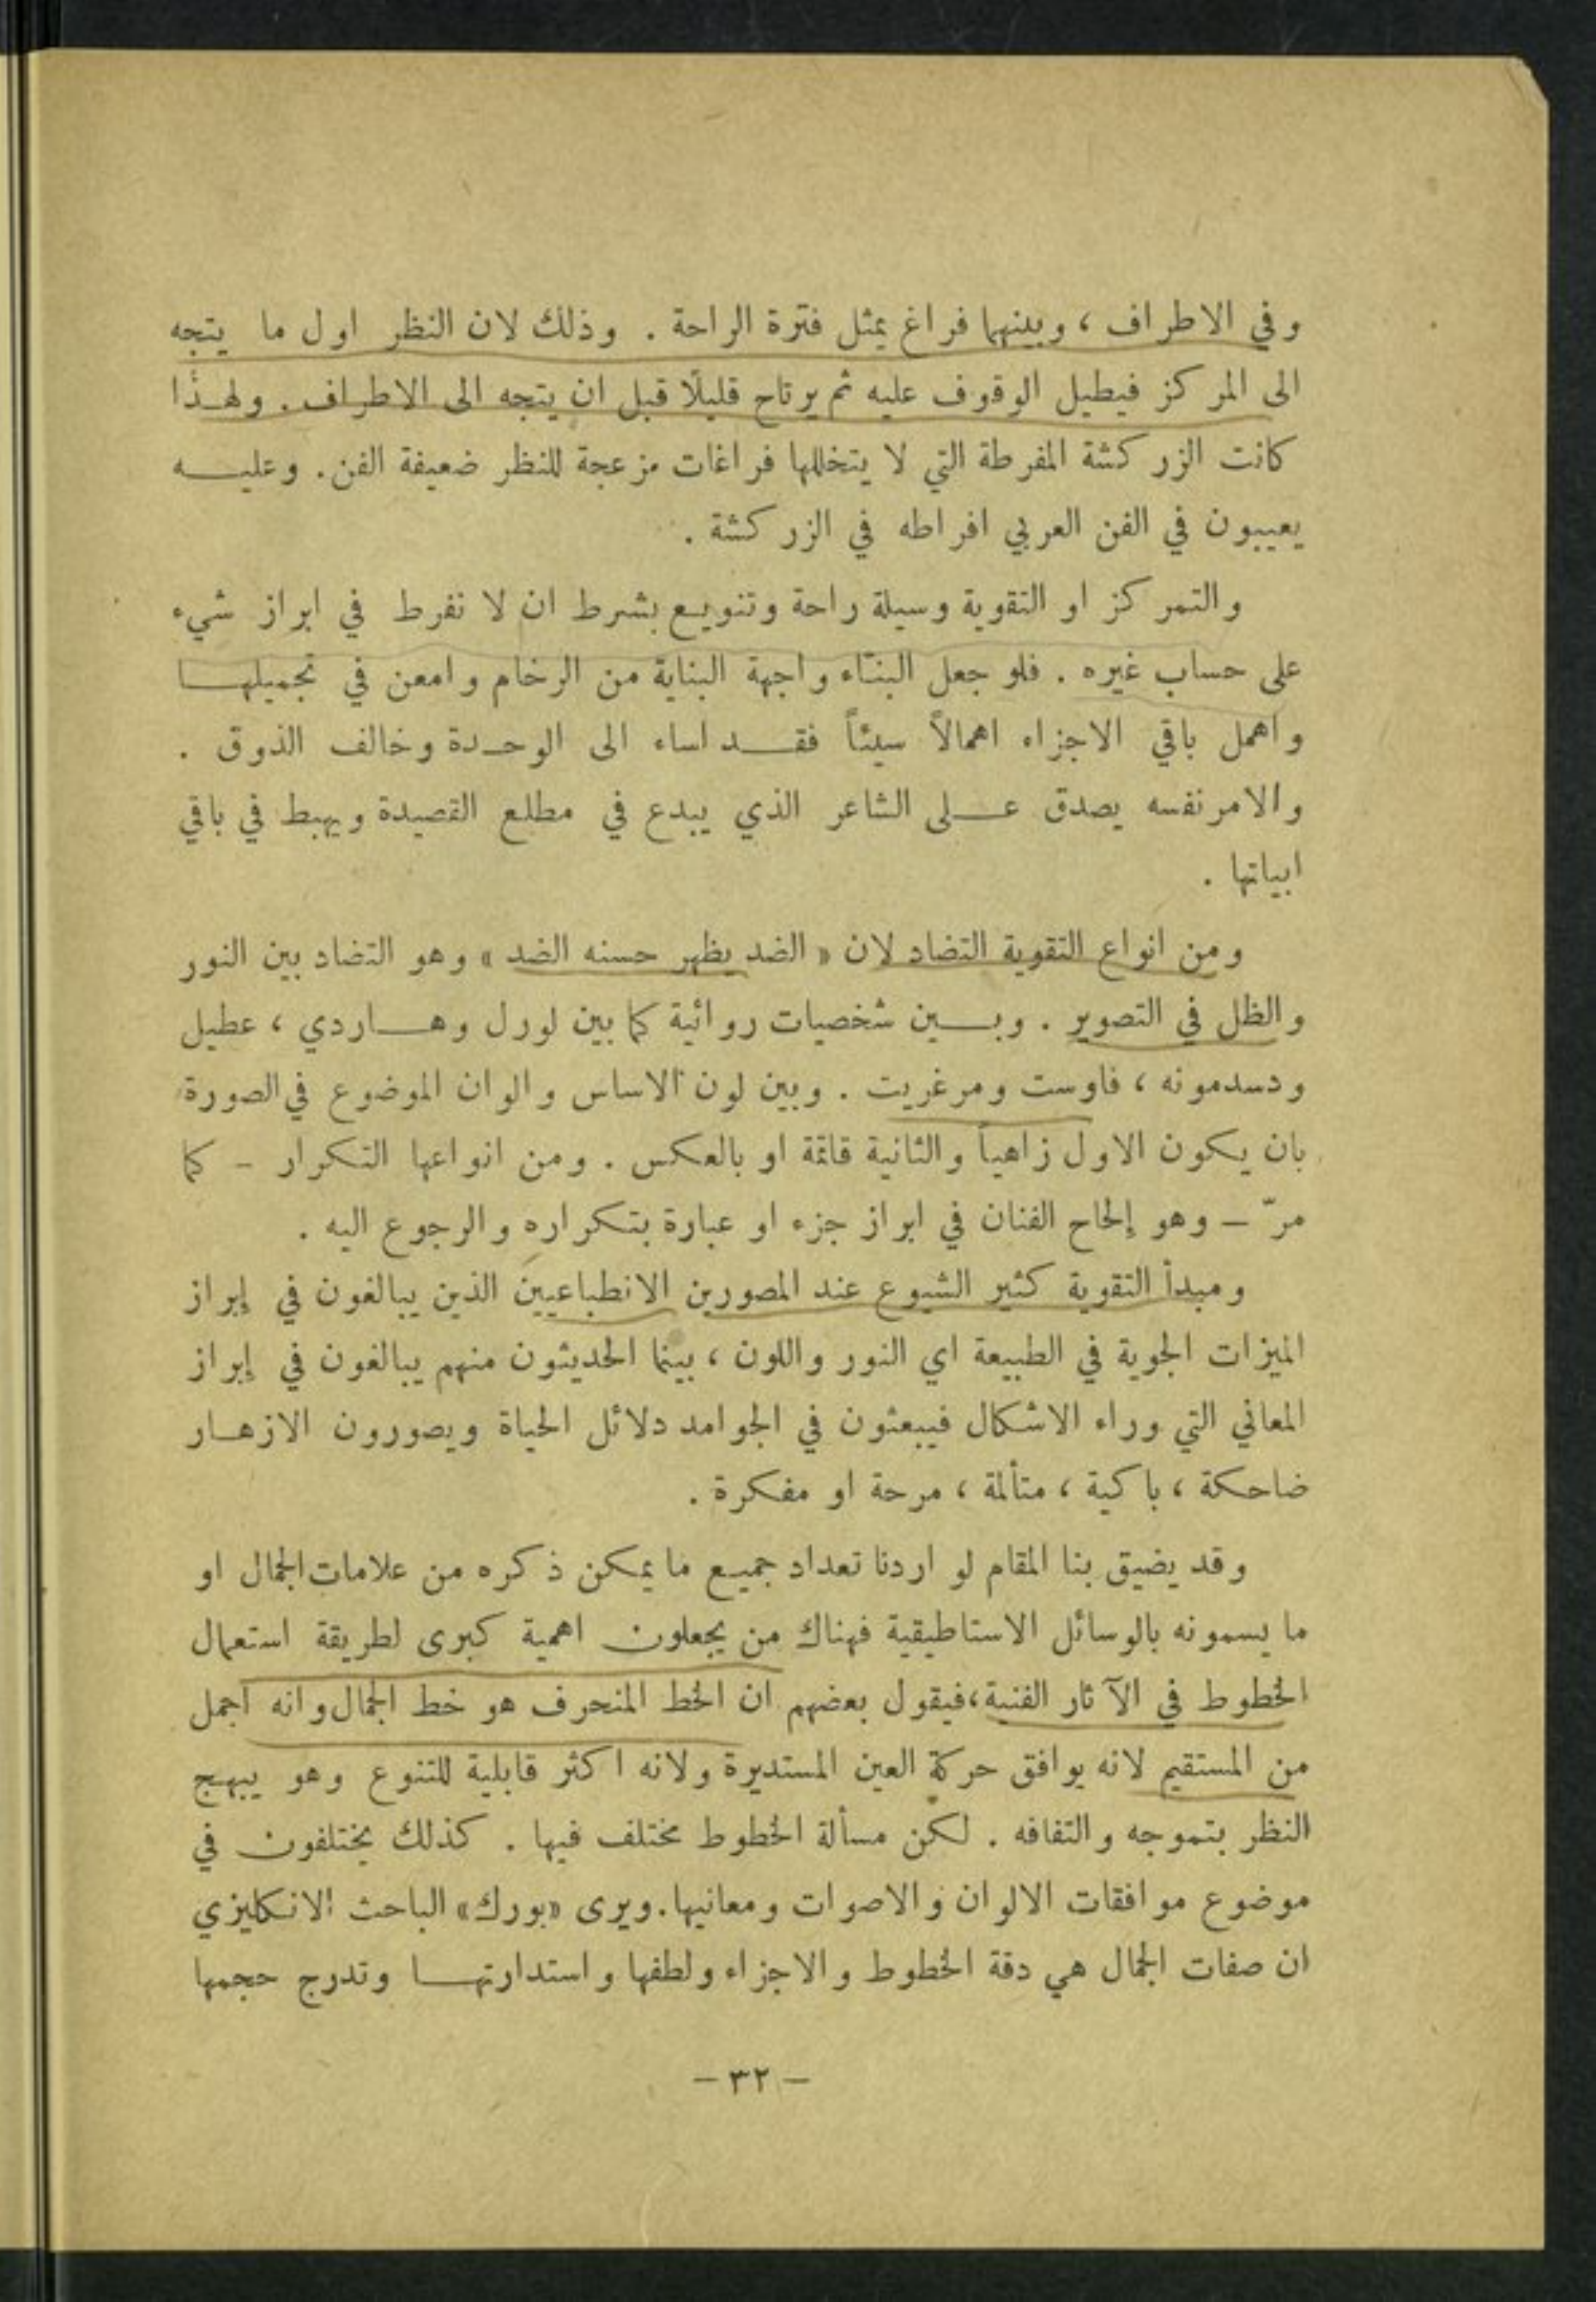 وفي الاطراف ، وبينهما فراغ يمثل فترة الراحة . وذلك لان النظر اول ما يتجه
الى المركز فيطيل الوقوف عليه ثم يرتاح قليلًا قبل ان يتجه الى الاطراف . ولهذا
كانت الزركشة المفرطة التي لا يتخللها فراغات مزعجة للنظر ضعيفة الفن . وعليه
يعيبون في الفن العربي افراطه في الزركشة .
والتمركز او التقوية وسيلة راحة وتنويع بشرط ان لا نفرط في ابراز شيء
على حساب غيره . فلو جعل البنّاء واجهة البناية من الرخام وامعن في تجميلها
واهمل باقي الاجزاء اهمالاً سيئاً فقد اساء الى الوحدة وخالف الذوق .
والامر نفسه يصدق على الشاعر الذي يبدع في مطلع القصيدة ويهبط في باقي
ابياتها .
ومن انواع التقوية التضاد لان « الضد يظهر حسنه الضد » وهو التضاد بين النور
والظل في التصوير . وبين شخصيات روائية كما بين لورل وهاردي ، عطيل
ودسدمونه ، فاوست ومرغريت . وبين لون الاساس والوان الموضوع في الصورة
بان يكون الاول زاهياً والثانية قاتمة او بالعكس . ومن انواعها التكرار - كما
مرّ - وهو إلحاح الفنان في ابراز جزء او عبارة بتكراره والرجوع اليه .
ومبدأ التقوية كثير الشيوع عند المصورين الانطباعيين الذين يبالغون في إبراز
الميزات الجوية في الطبيعة اي النور واللون ، بينما الحديثون منهم يبالغون في إبراز
المعاني التي وراء الاشكال فيبعثون في الجوامد دلائل الحياة ويصورون الازهار
ضاحكة ، باكية ، متألمة ، مرحة او مفكرة .
وقد يضيق بنا المقام لو اردنا تعداد جميع ما يمكن ذكره من علامات الجمال او
ما يسمونه بالوسائل الاستاطيقية فهناك من يجعلون اهمية كبرى لطريقة استعمال
الخطوط في الآثار الفنية ، فيقول بعضهم ان الخط المنحرف هو خط الجمال وانه اجمل
من المستقيم لانه يوافق حركة العين المستديرة ولانه اكثر قابلية للتنوع وهو يبهج
النظر بتموجه والتفافه . لكن مسألة الخطوط مختلف فيها . كذلك يختلفون في
موضوع موافقات الالوان والاصوات ومعانيها . ويرى «بورك» الباحث الانكليزي
ان صفات الجمال هي دقة الخطوط والاجزاء ولطفها واستدارتها وتدرج حجمها
- ٣٢ -